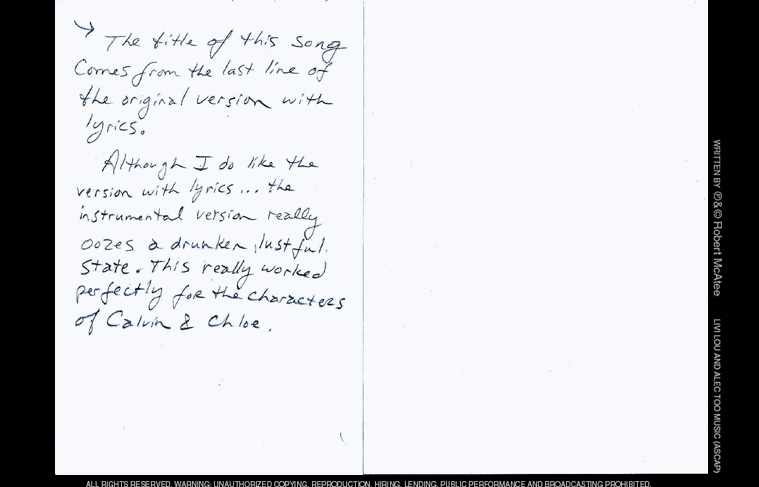 → The title of this song
Comes from the last line of
the original version with
lyrics.
Although I do like the
version with lyrics... the
instrumental version really
oozes a drunken, lustful
state. This really worked
perfectly for the characters
of Calvin & Chloe.
WRITTEN BY ℗&© Robert McAtee
LIVI LOU AND ALEC TOO MUSIC (ASCAP)
ALL RIGHTS RESERVED. WARNING: UNAUTHORIZED COPYING, REPRODUCTION, HIRING, LENDING, PUBLIC PERFORMANCE AND BROADCASTING PROHIBITED.